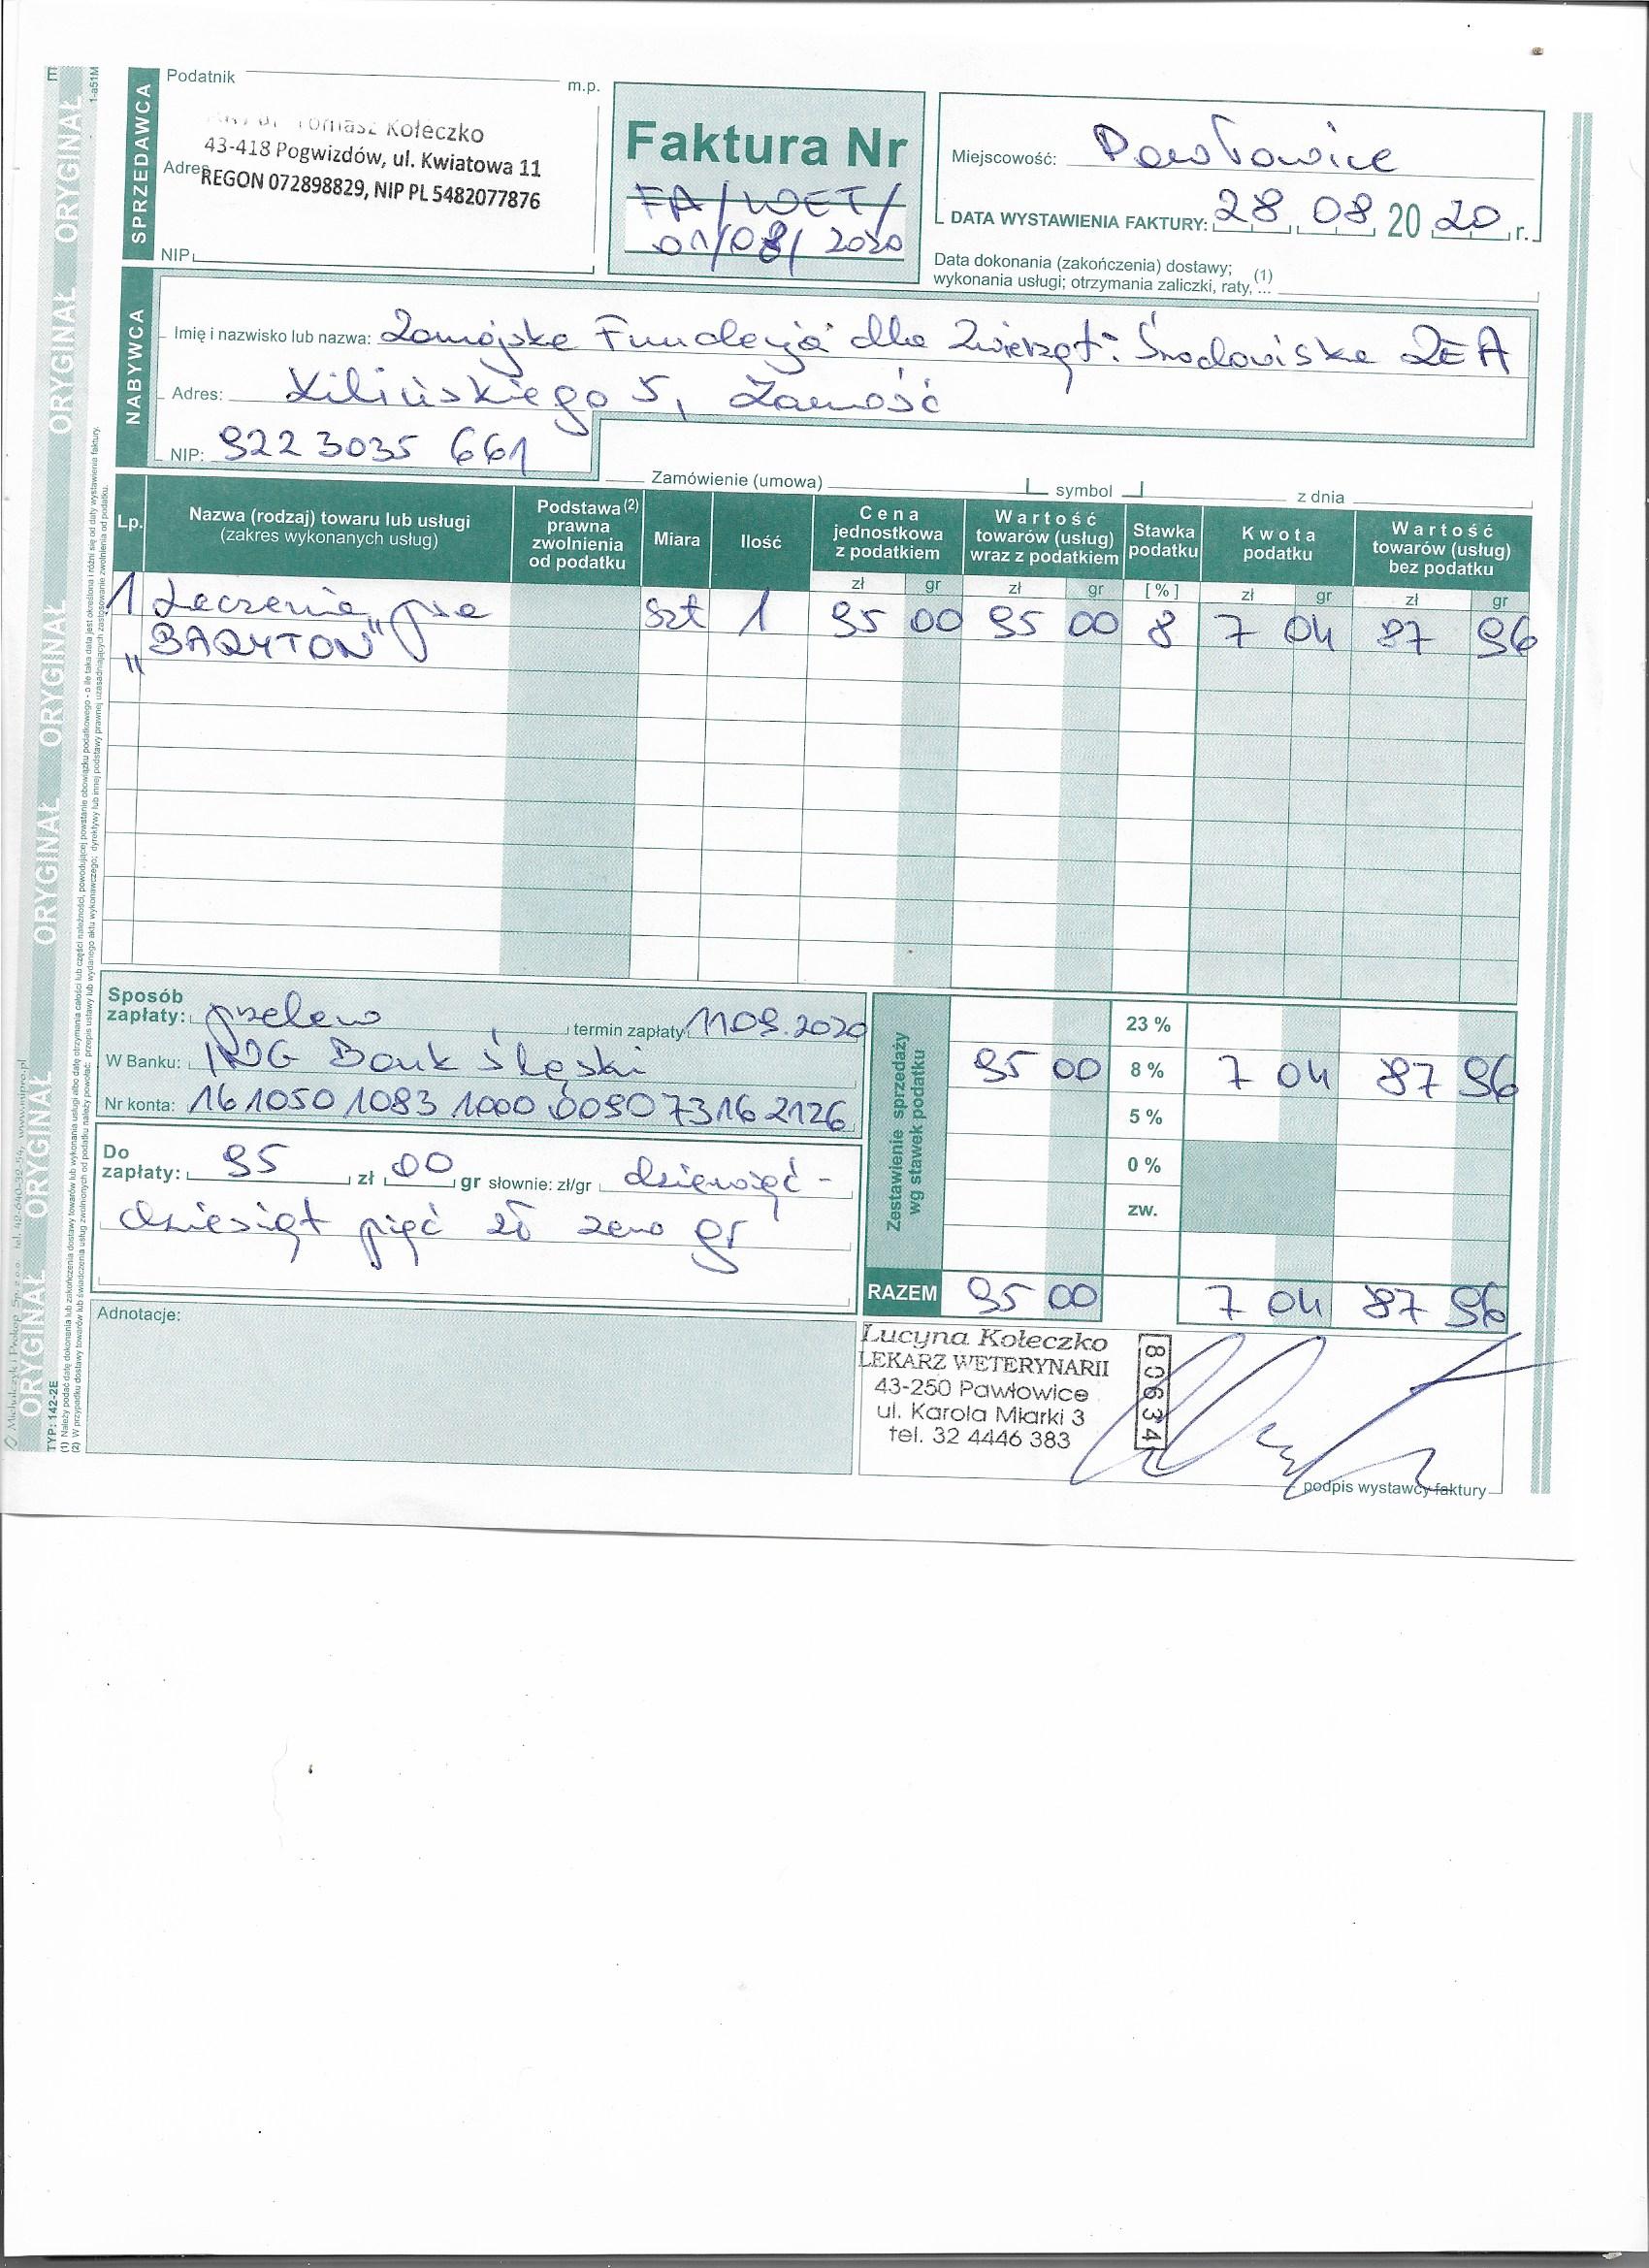 E
1-a51M
ORYGINAŁ ORYGINAŁ ORYGINAŁ ORYGINAŁ ORYGINAŁ ORYGINAŁ ORYGINAŁ
SPRZEDAWCA
Podatnik
m.p.
Tomasz Kołeczko
43-418 Pogwizdów, ul. Kwiatowa 11
Adres
REGON 072898829, NIP PL 5482077876
NIP
Faktura Nr
FA/WET/
01/08/2020
Miejscowość: Pawłowice
DATA WYSTAWIENIA FAKTURY: 28 08 20 20 r.
Data dokonania (zakończenia) dostawy;
wykonania usługi; otrzymania zaliczki, raty, ... (1)
NABYWCA
Imię i nazwisko lub nazwa: Zamojska Fundacja dla Zwierząt i Środowiska ZEA
Adres: Kilińskiego 5, Zamość
NIP: 922 3035 661
Zamówienie (umowa) symbol z dnia
Lp.
Nazwa (rodzaj) towaru lub usługi
(zakres wykonanych usług)
Podstawa (2)
prawna
zwolnienia
od podatku
Miara
Ilość
Cena
jednostkowa
z podatkiem
Wartość
towarów (usług)
wraz z podatkiem
Stawka
podatku
Kwota
podatku
Wartość
towarów (usług)
bez podatku
zł gr zł gr [%] zł gr zł gr
1 Leczenie psa szt 1 95 00 95 00 8 7 04 87 96
„BARYTON"
Sposób
zapłaty: przelew termin zapłaty 11.09.2020
W Banku: ING Bank Śląski
Nr konta: 16 1050 1083 1000 0090 7316 2126
Do
zapłaty: 95 zł 00 gr słownie: zł/gr dziewięć-
dziesiąt pięć zł zero gr
Adnotacje:
Zestawienie sprzedaży
wg stawek podatku
23 %
95 00 8 % 7 04 87 96
5 %
0 %
zw.
RAZEM 95 00 7 04 87 96
Lucyna Kołeczko
LEKARZ WETERYNARII
43-250 Pawłowice
ul. Karola Miarki 3
tel. 32 4446 383
80634
podpis wystawcy faktury
TYP: 142-2E
(1) Należy podać datę dokonania lub zakończenia dostawy towarów lub wykonania usługi albo datę otrzymania całości lub części należności, powodującej powstanie obowiązku podatkowego - o ile taka data jest określona i różni się od daty wystawienia faktury.
(2) W przypadku dostawy towarów lub świadczenia usług zwolnionych od podatku należy powołać: przepis ustawy lub wydanego aktu wykonawczego; dyrektywy lub innej podstawy prawnej uzasadniających zastosowanie zwolnienia od podatku.
Michalczyk i Prokop Sp. z o.o. www.mipro.pl